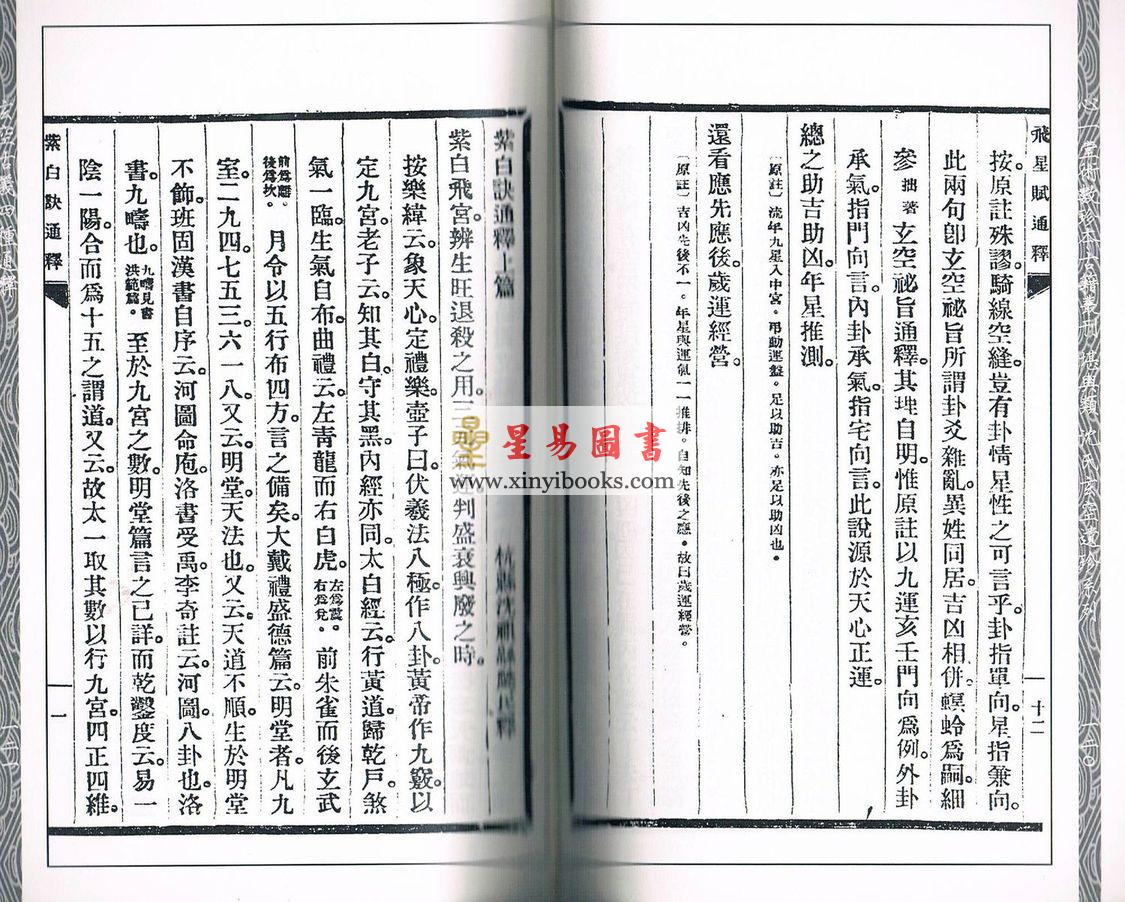 飛星賦通釋
十二
按。原註殊謬。騎線空縫。豈有卦情星性之可言乎。卦指單向。星指兼向。
此兩句卽玄空祕旨所謂卦爻雜亂。異姓同居。吉凶相併。螟蛉爲嗣。細
參拙著玄空祕旨通釋。其理自明。惟原註以九運亥壬門向爲例。外卦
承氣。指門向言。內卦承氣。指宅向言。此說源於天心正運。
總之助吉助凶。年星推測。
〔原註〕流年九星入中宮。吊動運盤。足以助吉。亦足以助凶也。
還看應先應後。歲運經營。
〔原註〕吉凶先後不一。年星與運氣一一推排。自知先後之應。故曰歲運經營。
紫白訣通釋上篇
杭縣沈祖緜瓞民釋
紫白飛宮。辨生旺退殺之用。三元氣運。判盛衰興廢之時。
按。樂緯云。象天心。定禮樂。壺子曰。伏羲法八極。作八卦。黃帝作九竅。以
定九宮。老子云。知其白。守其黑。內經亦同。太白經云。行黃道。歸乾戶。煞
氣一臨。生氣自布。曲禮云。左青龍而右白虎。左爲震。右爲兌。前朱雀而後玄武
前爲離。後爲坎。月令以五行布四方。言之備矣。大戴禮盛德篇云。明堂者。凡九
室。二九四七五三六一八。又云。明堂天法也。又云。天道不順。生於明堂
不飾。班固漢書自序云。河圖命庖。洛書受禹。李奇註云。河圖八卦也。洛
書。九疇也。九疇見書洪範篇。至於九宮之數。明堂篇言之已詳。而乾鑿度云。易一
陰一陽。合而爲十五之謂道。又云。故太一取其數以行九宮。四正四維。
紫白訣通釋
一
星易圖書
www.xinyibooks.com